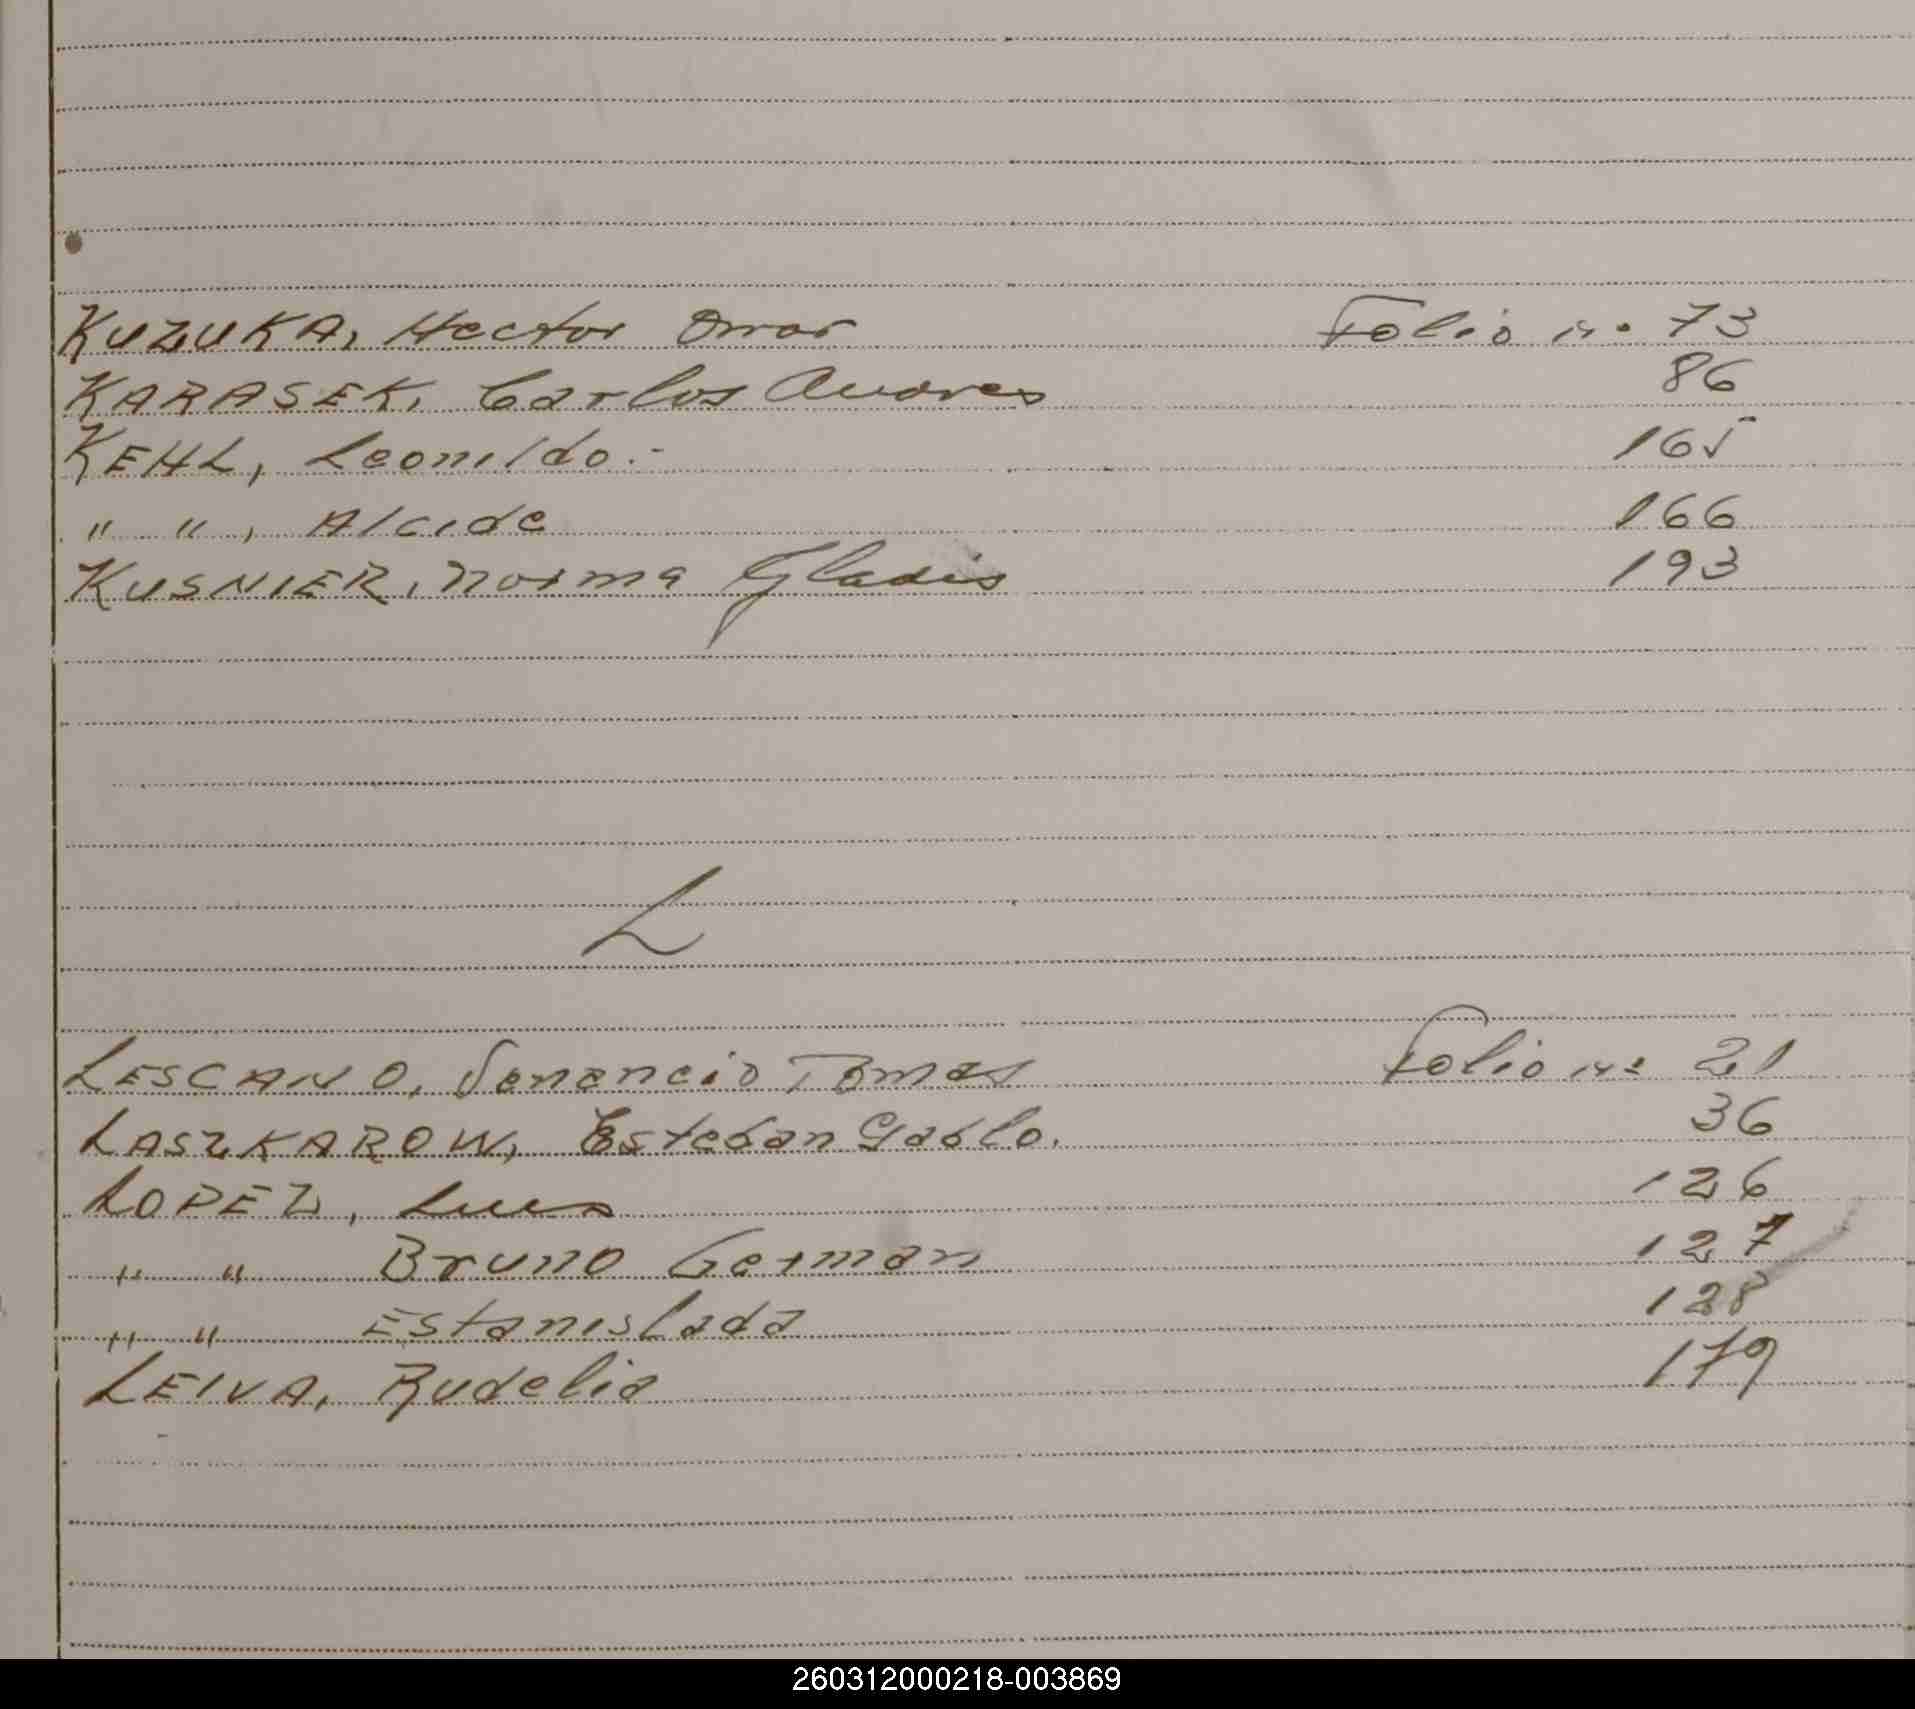 KUZUKA, Hector Omar Folio nº 73
KARASEK, Carlos Andres 86
KEHL, Leonildo.- 165
" " , Alcide 166
KUSNIER, Norma Gladis 193
L
LESCANO, Venancio Tomas Folio nº 21
LASZKAROW, Esteban Pablo. 36
LOPEZ, Luis 126
" " Bruno German 127
" " Estanislada 128
LEIVA, Rudelia 179
260312000218-003869